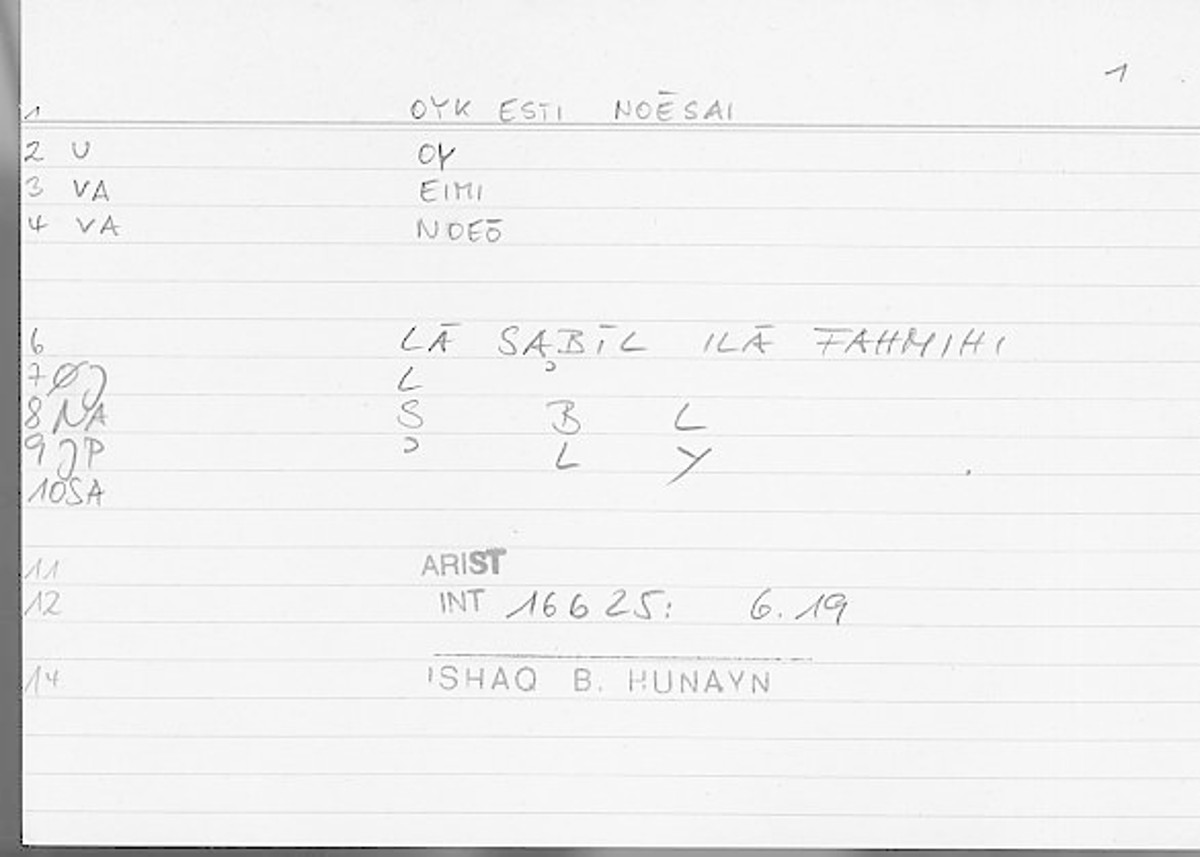 1
1 OYK ESTI NOĒSAI
2 U OY
3 VA EIMI
4 VA NOEŌ
6 LĀ SABĪL ILĀ FAHMIHI
7 ØJ L
8 NA S B L
9 JP ʾ L Y
10 SA
11 ARIST
12 INT 16625: 6.19
14 ISHAQ B. HUNAYN